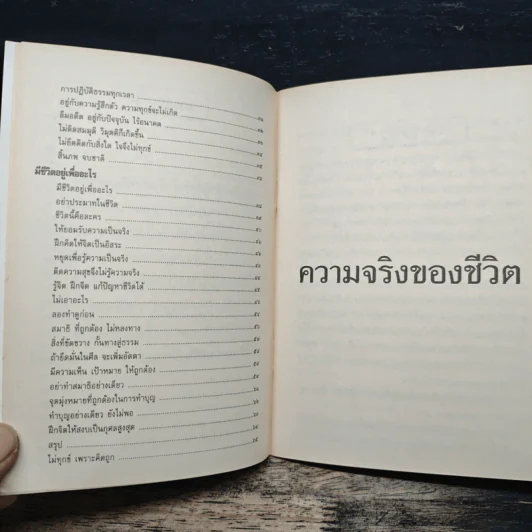 การปฏิบัติธรรมทุกเวลา
อยู่กับความรู้สึกตัว ความทุกข์จะไม่เกิด
ลืมอดีต อยู่กับปัจจุบัน ไร้อนาคต
ไม่ติดสมมุติ วิมุตติก็เกิดขึ้น
ไม่ยึดติดกับสิ่งใด ใจจึงไม่ทุกข์
สิ้นภพ จบชาติ
มีชีวิตอยู่เพื่ออะไร
มีชีวิตอยู่เพื่ออะไร
อย่าประมาทในชีวิต
ชีวิตนี้คือละคร
ให้ยอมรับความเป็นจริง
ฝึกคิดให้จิตเป็นอิสระ
หยุดเพื่อรู้ความเป็นจริง
ติดความสุขจึงไม่รู้ความจริง
รู้จิต ฝึกจิต แก้ปัญหาชีวิตได้
ไม่เอาอะไร
ลองทำดูก่อน
สมาธิ ที่ถูกต้อง ไม่หลงทาง
สิ่งที่ขัดขวาง กั้นทางสู่ธรรม
ถ้ายึดมั่นในศีล จะเพิ่มอัตตา
มีความเห็น เป้าหมาย ให้ถูกต้อง
อย่าทำสมาธิอย่างเดียว
จุดมุ่งหมายที่ถูกต้องในการทำบุญ
ทำบุญอย่างเดียว ยังไม่พอ
ฝึกจิตให้สงบเป็นกุศลสูงสุด
สรุป
ไม่ทุกข์ เพราะคิดถูก
ความจริงของชีวิต